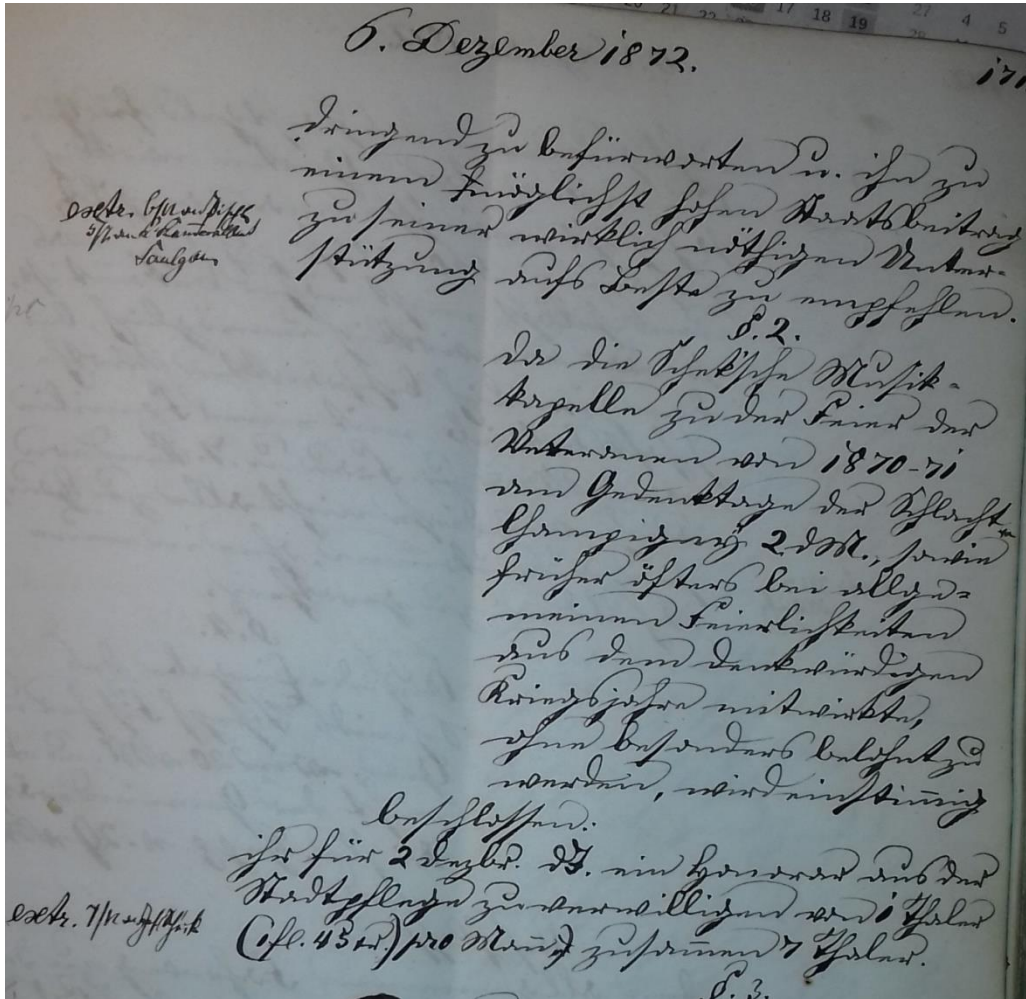 6. Dezember 1872.
171
dringend zu befürworten u. ihn zu
einem möglichst hohen Staatsbeitrag
zu seiner wirklich nöthigen Unter-
stützung aufs Beste zu empfehlen.
extr.
Saulgau
§. 2.
Da die Schek'sche Musik-
kapelle zu der Feier der
Veteranen von 1870-71
am Gedenktage der Schlacht
Champigny 2 d M., sowie
früher öfters bei allge-
meinen Feierlichkeiten
aus dem denkwürdigen
Kriegsjahre mitwirkte,
ohne besonders belohnt zu
werden, wird einstimmig
beschlossen:
ihr für 2 Dezbr. d J. ein Honorar aus der
Stadtpflege zu verwilligen von 1 Thaler
(1 fl. 45 xr.) pro Mann, zusammen 7 Thaler.
extr. 7/12
§. 3.